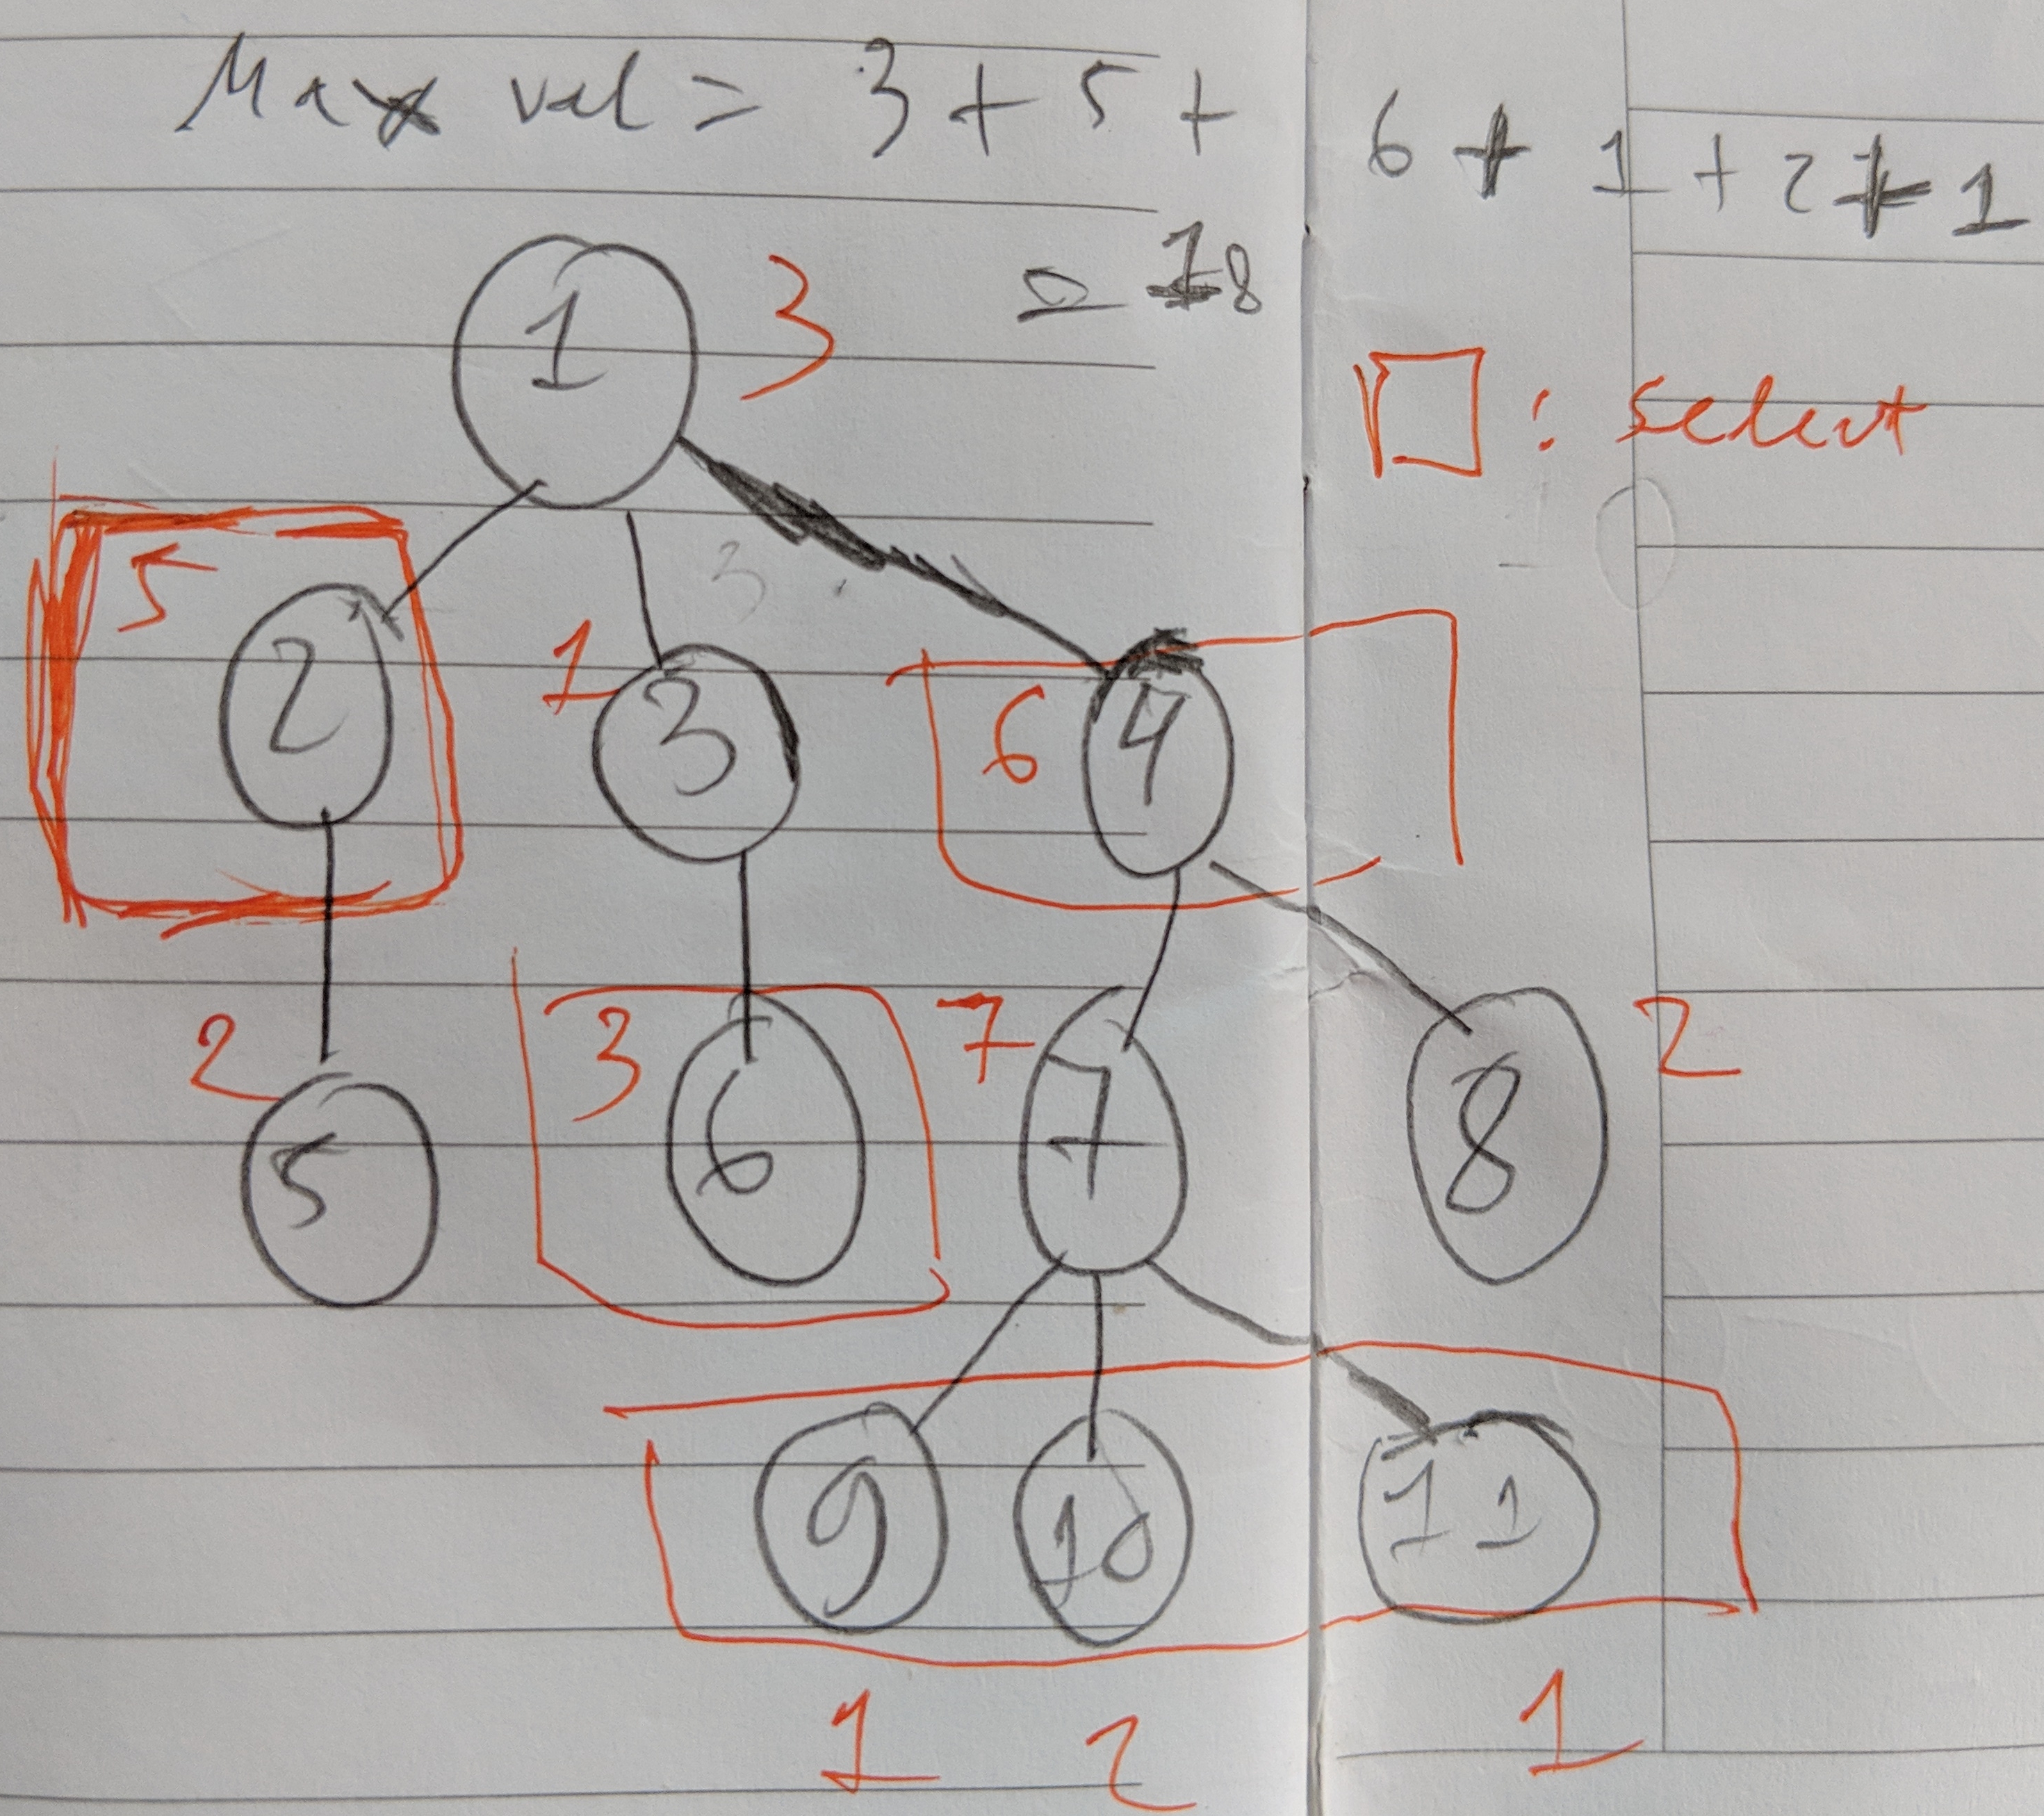 Max val = 3 + 5 + 6 + 1 + 2 + 1
= 18
1 3
: select
5
2
1
3
6
4
2
5
3
6
7
7
8
2
9
10
11
1
2
1